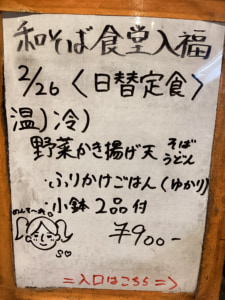 和そば食堂入福
2/26〈日替定食〉
温)冷)
野菜かき揚げ天 そば
うどん
・ふりかけごはん(ゆかり)
・小鉢2品付
¥900-
=入口はこちら=>